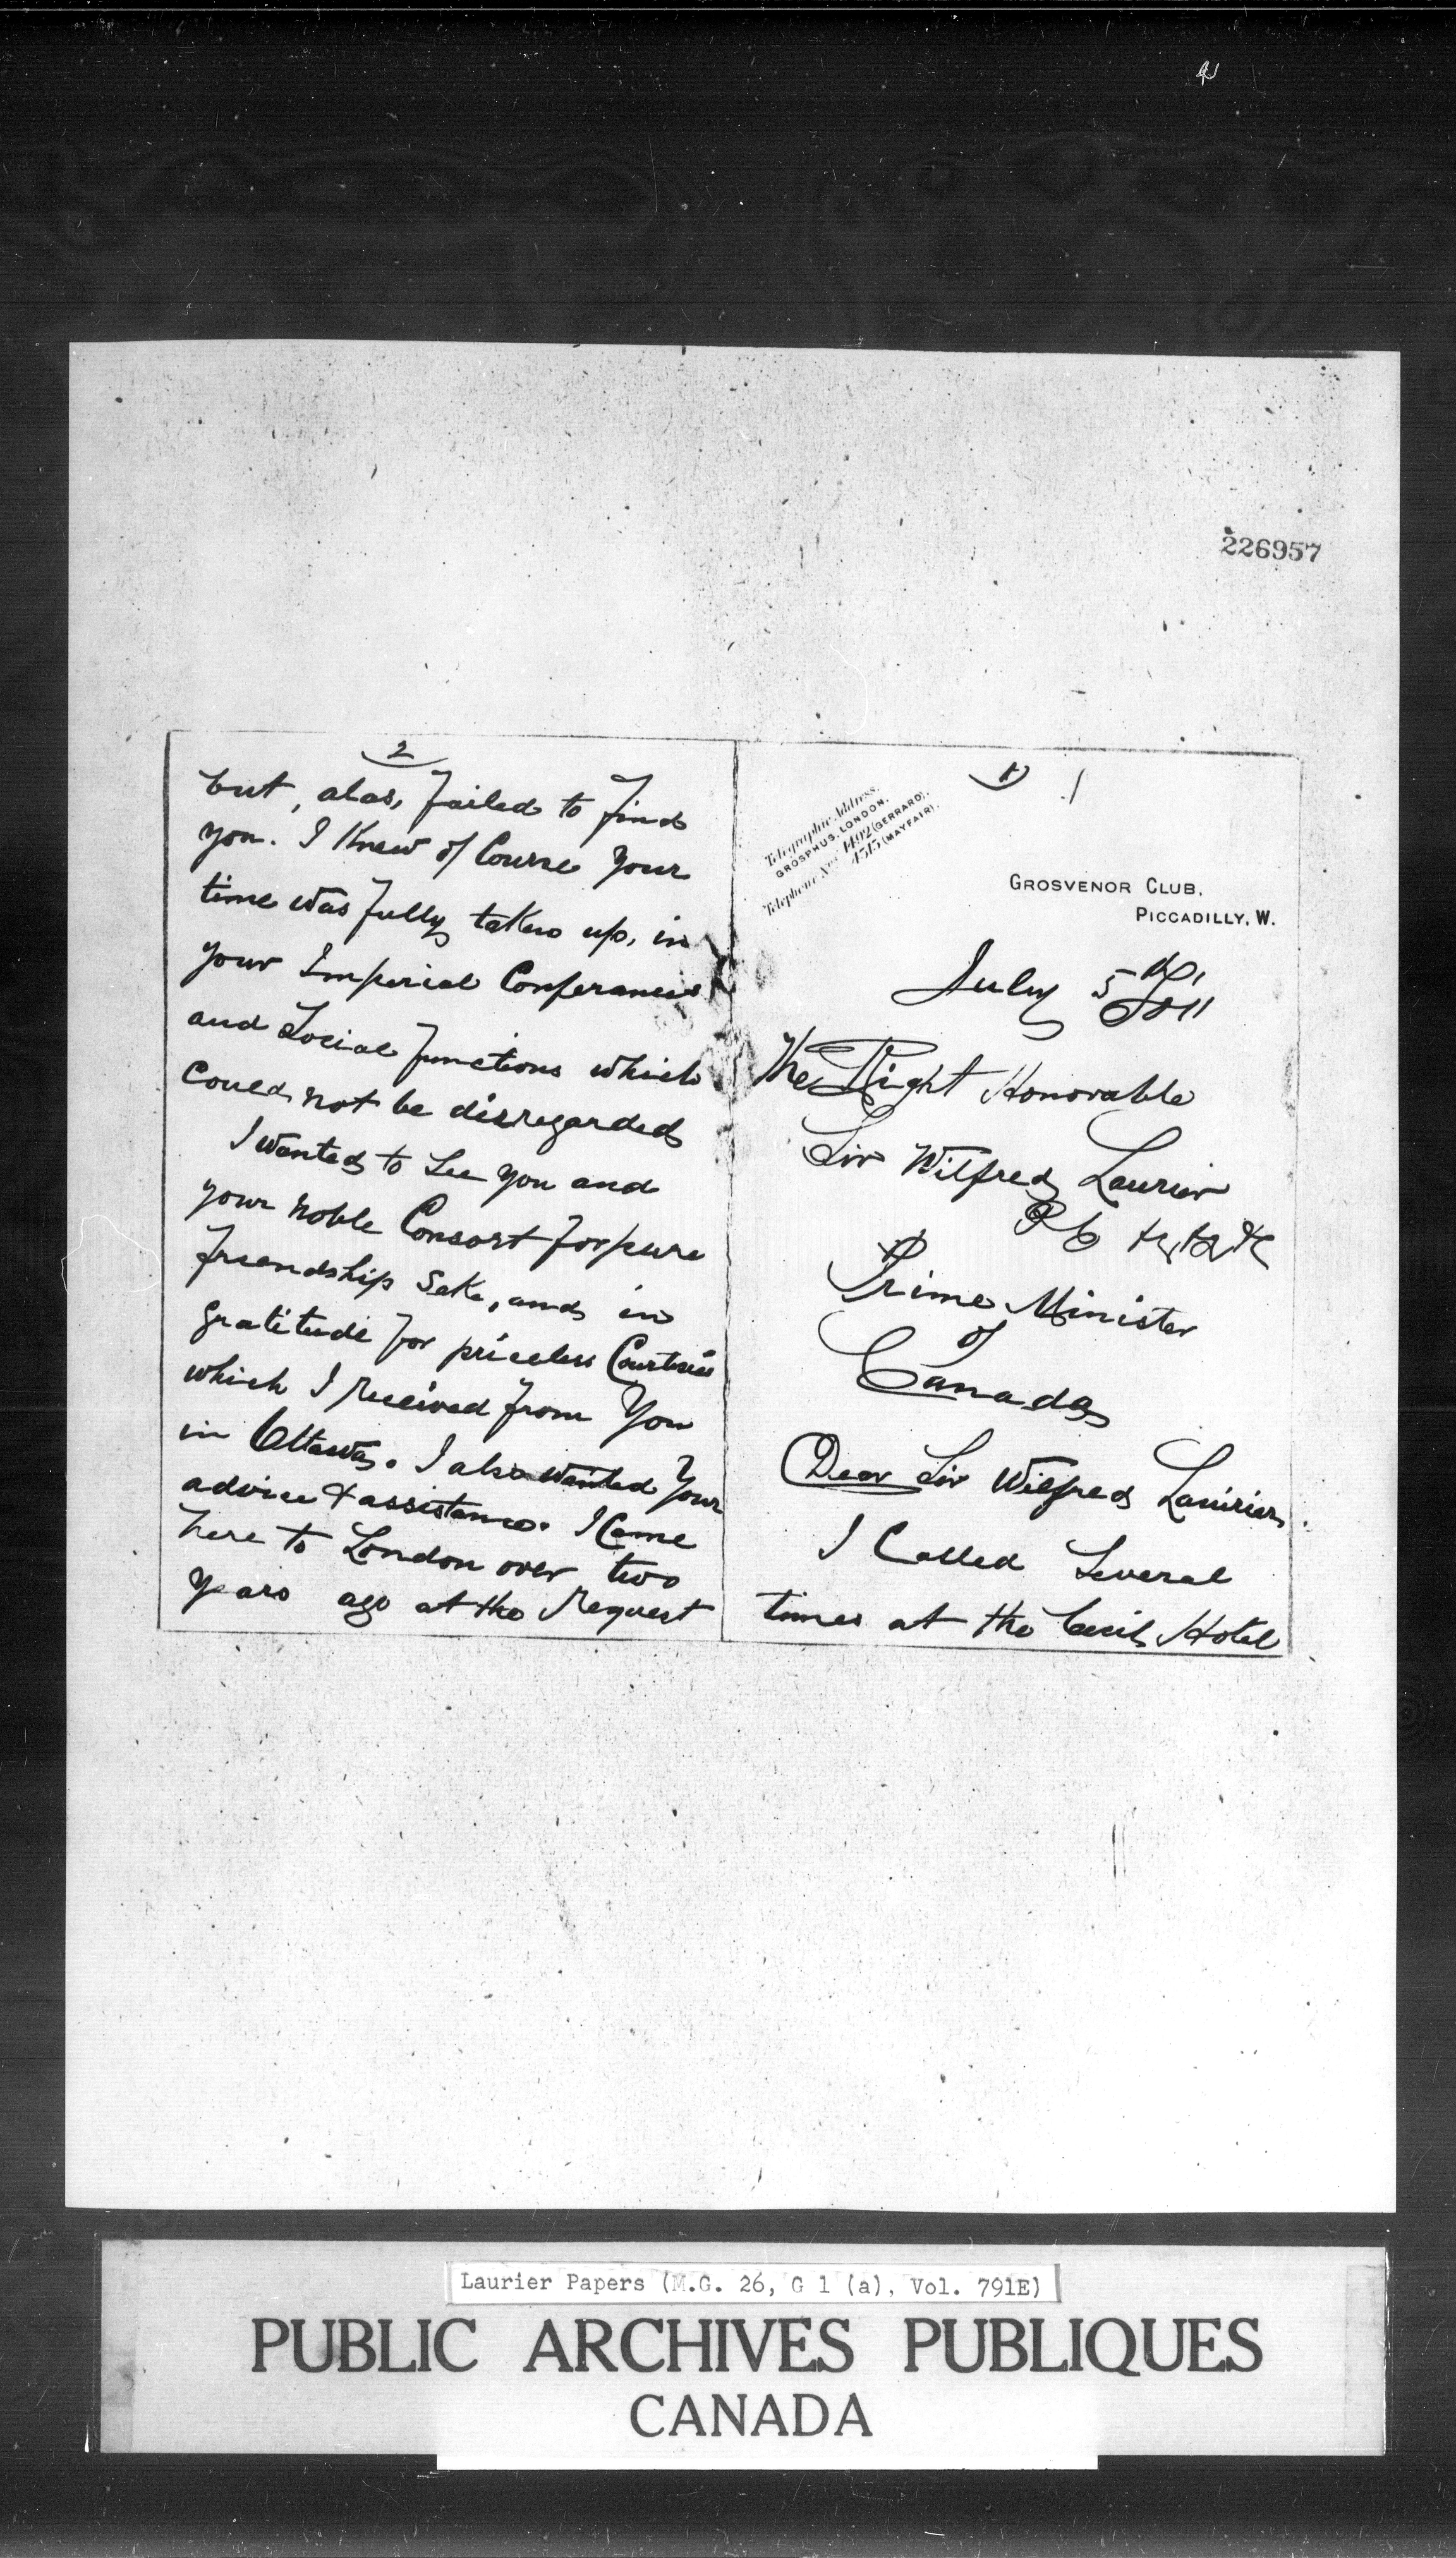 226957
1
Telegraphic Address.
GROSPHUS, LONDON.
Telephone Nos 1492 (GERRARD).
4515 (MAYFAIR).
GROSVENOR CLUB,
PICCADILLY, W.
July 5th 1911
The Right Honorable
Sir Wilfred Laurier
P C
Prime Minister
of
Canada
Dear Sir Wilfred Laurier,
I Called Several
times at the Cecil Hotel
2
but, alas, failed to find
you. I Knew of Course your
time was fully taken up, in
your Imperial Conferances
and Social functions which
could not be disregarded
I wanted to See you and
your noble Consort for pure
friendship Sake, and in
gratitude for priceless Courtesies
which I received from You
in Ottawa. I also wanted Your
advice & assistance. I Came
here to London over two
years ago at the Request
Laurier Papers (M.G. 26, G 1 (a), Vol. 791E)
PUBLIC ARCHIVES PUBLIQUES
CANADA